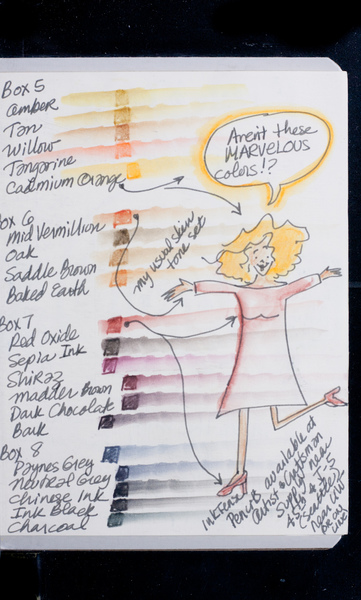 Box 5
Amber
Tan
Willow
Tangarine
Cadmium Orange
Aren't these
MARVELOUS
colors!?
Box 6
mid Vermillion
Oak
Saddle Brown
Baked Earth
my usual skin
tone set
Box 7
Red Oxide
Sepia Ink
Shiraz
madder Brown
Dark Chocolate
Bark
Box 8
Paynes Grey
neutral Grey
Chinese Ink
Ink Black
Charcoal
Inktense
Pencils available at
Artist & Craftsman
Supply
Seattle
near UW